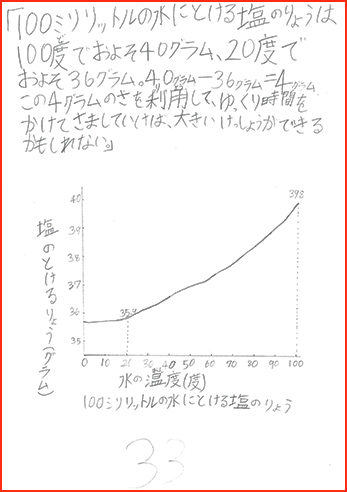 「100ミリリットルの水にとける塩のりょうは
100度でおよそ40グラム、20度で
およそ36グラム。40グラム−36グラム=4グラム
この4グラムのさを利用して、ゆっくり時間を
かけてさましていけば、大きいけっしょうができる
かもしれない。」
塩のとけるりょう(グラム)
40
39
38
37
36
35
39.8
35.9
0 10 20 30 40 50 60 70 80 90 100
水の温度(度)
100ミリリットルの水にとける塩のりょう
33